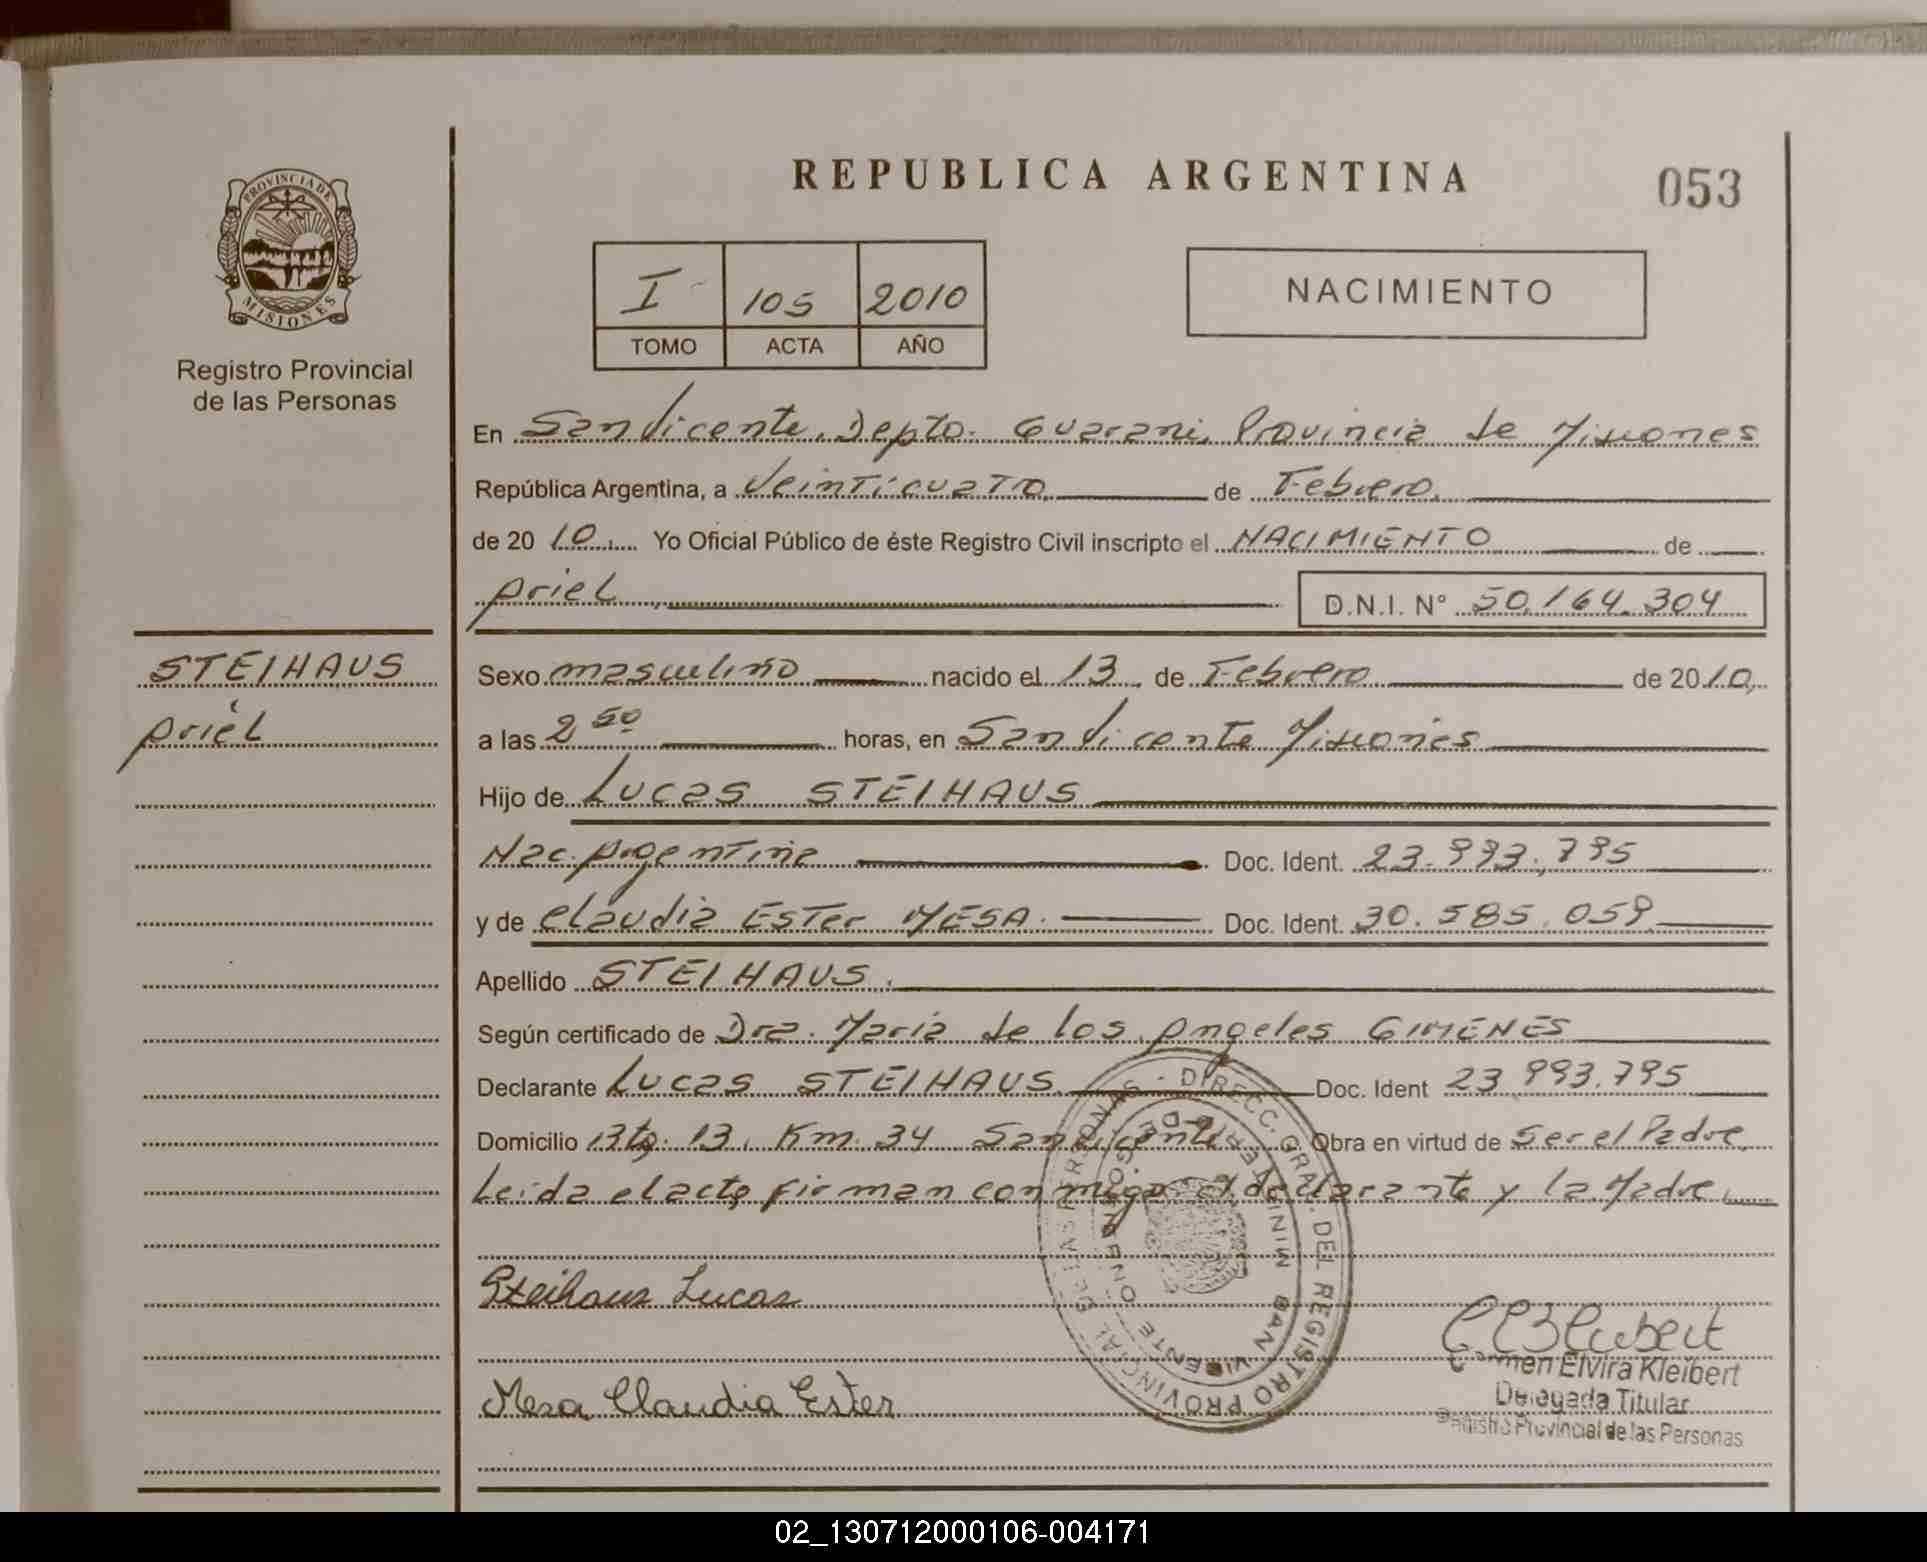 REPUBLICA ARGENTINA
053
PROVINCIA DE
MISIONES
Registro Provincial
de las Personas
I 105 2010
TOMO ACTA AÑO
NACIMIENTO
En San Vicente, Depto. Guarani, Provincia de Misiones
República Argentina, a Veinticuatro de Febrero
de 2010. Yo Oficial Público de éste Registro Civil inscripto el NACIMIENTO de
Ariel D.N.I. N° 50.164.304
STEIHAUS
Ariel
Sexo masculino nacido el 13 de Febrero de 2010
a las 2 50 horas, en San Vicente Misiones
Hijo de Lucas STEIHAUS
Nac. Argentina Doc. Ident. 23.993.795
y de Claudia Ester MESA. Doc. Ident. 30.585.059
Apellido STEIHAUS.
Según certificado de Dra. Maria de los Angeles GIMENES
Declarante Lucas STEIHAUS. Doc. Ident 23.993.795
Domicilio Km. 34 San Vicente Obra en virtud de ser el Padre,
Leida el acta firman conmigo el declarante y la Madre,
Steihaus Lucas
Mesa Claudia Ester
DIRECC. GRAL. DEL REGISTRO PROVINCIAL DE LAS PERSONAS
MINISTERIO DE GOBIERNO
SAN VICENTE
Carmen Elvira Kleibert
Delegada Titular
Registro Provincial de las Personas
02_130712000106-004171